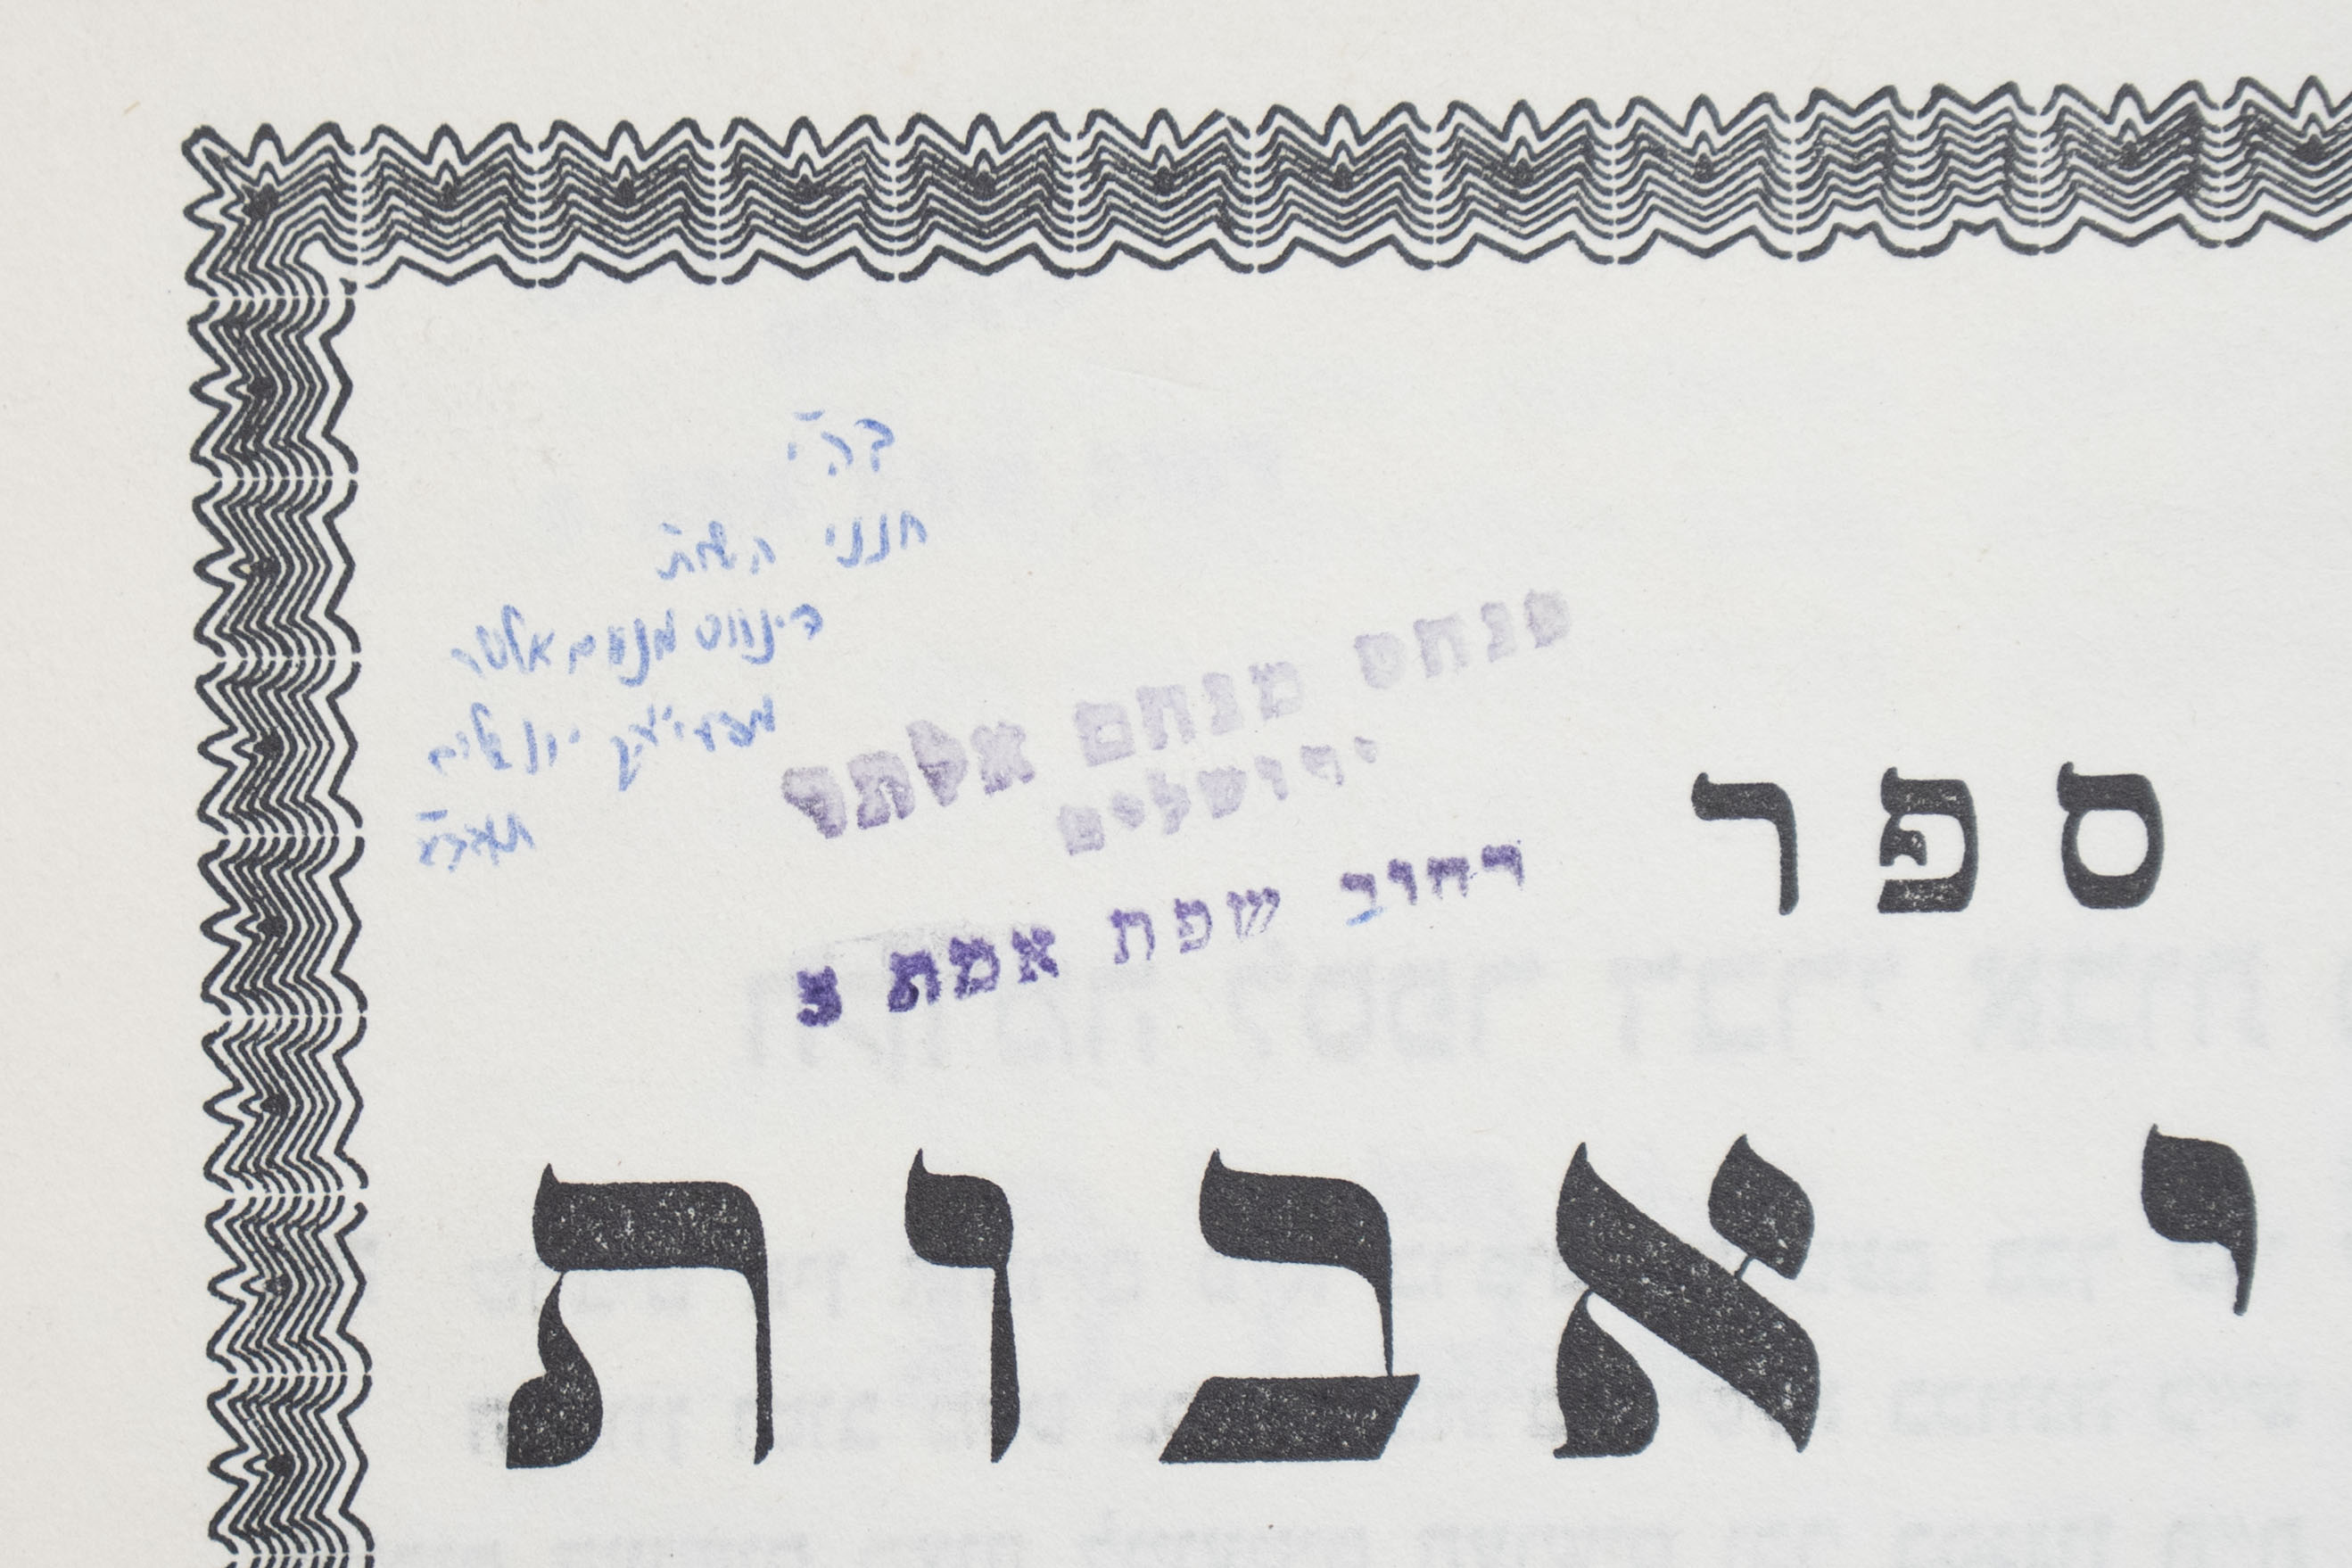 בה״י
חנני השי״ת
פינחס מנחם אלתר
ירושלים
פנחס מנחם אלתר
ירושלים
רחוב שפת אמת 5
ספר
י אבות